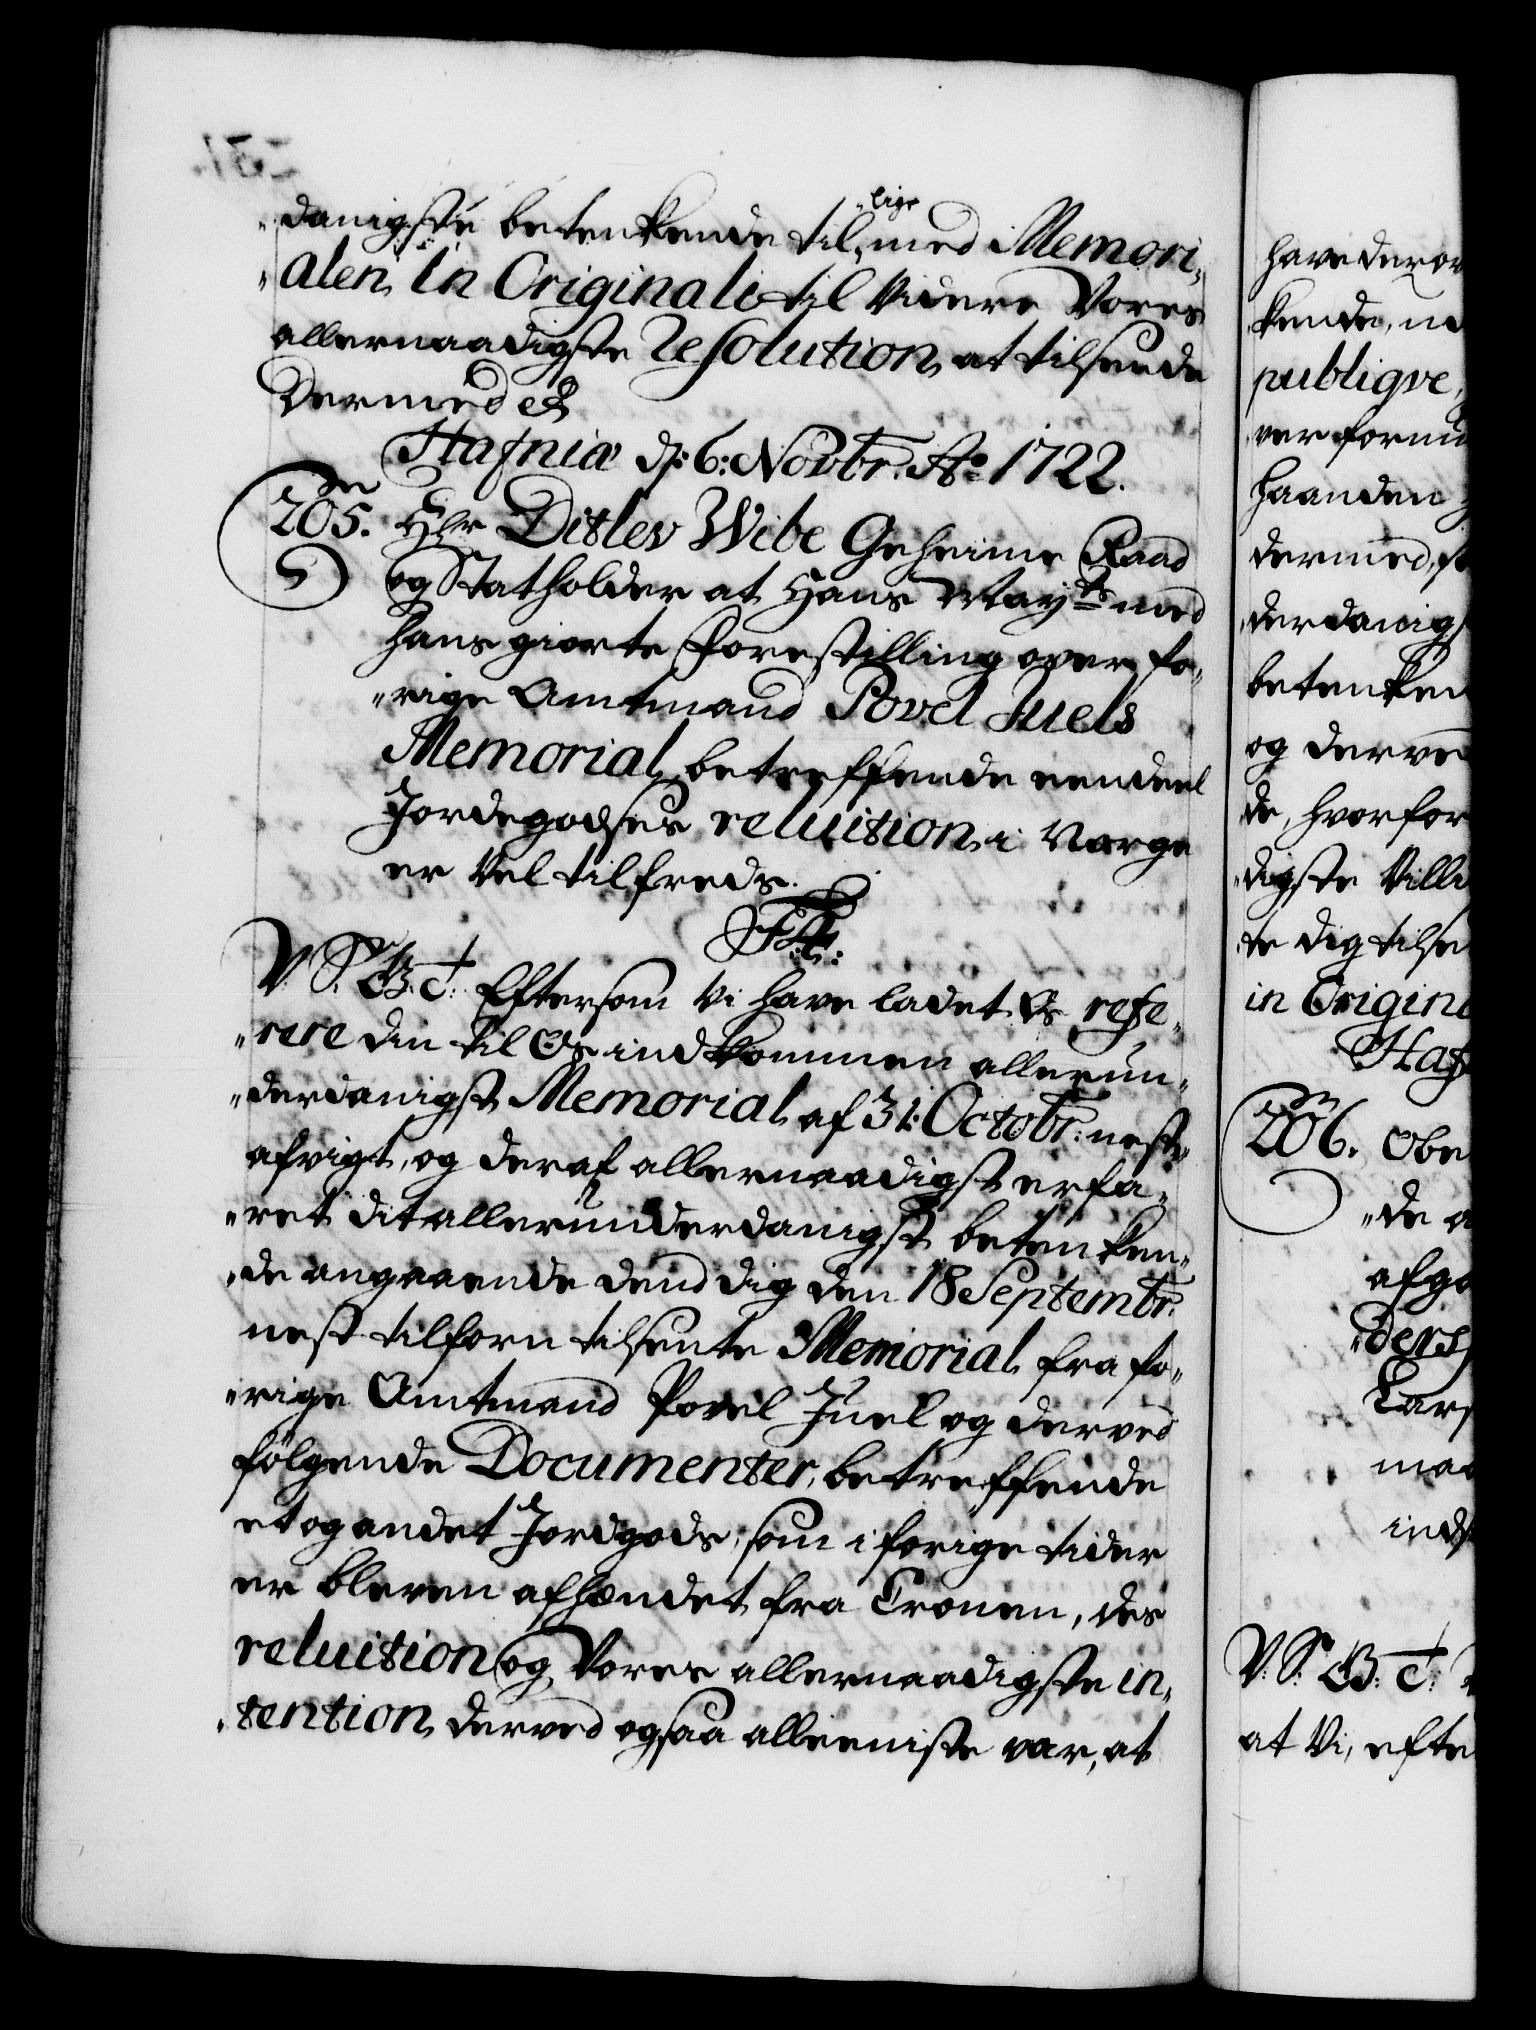 danigste betenkende til, lige med Memori„
„alen in Originali til videre Vores
allernaadigste Resolution, at tilsende
Dermed etc
Hafniæ d: 6: Novbr: Ao 1722.
205. Hr Ditlev Wibe Geheime Raad
og Statholder at Hans Mayts med
hans giorte Forestilling over fo„
„rige Amtmand Povel Juels
Memorial, betreffende eendeel
Jordegodses reluition i Norge
er vel tilfreds.
F. 4.
V. S. G. T. Eftersom vi have ladet Os refe„
„rere din til Os indkommen allerun„
„derdanigst Memorial af 31: Octobr: nest„
afvigt, og deraf allernaadigst erfa„
„ret dit allerunderdanigst betenken„
„de angaaende dend dig den 18 Septembr:
nest tilforn tilsente Memorial fra fo„
„rige Amtmand Povel Juel og derved
følgende Documenter, betreffende
et og andet Jordgods, som i forige tider
er bleven afhændet fra Cronen, des
reluition og Vores allernaadigste in„
„tention derved ogsaa alleeniste var, at
have derov
kende, me
publiqve,
ver formu
haanden
dermed, s
derdanigs
betenken
og derve
de, hvorfor
„digste Villi
te dig tilse
in Origina
Haf
206. Obe
„de a
afga
„ders
Lars
maa
inds
V: S: G: T:
at Vi, efte